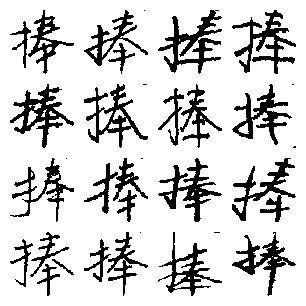 捧捧捧捧
捧捧捧捧
捧捧捧捧
捧捧捧捧